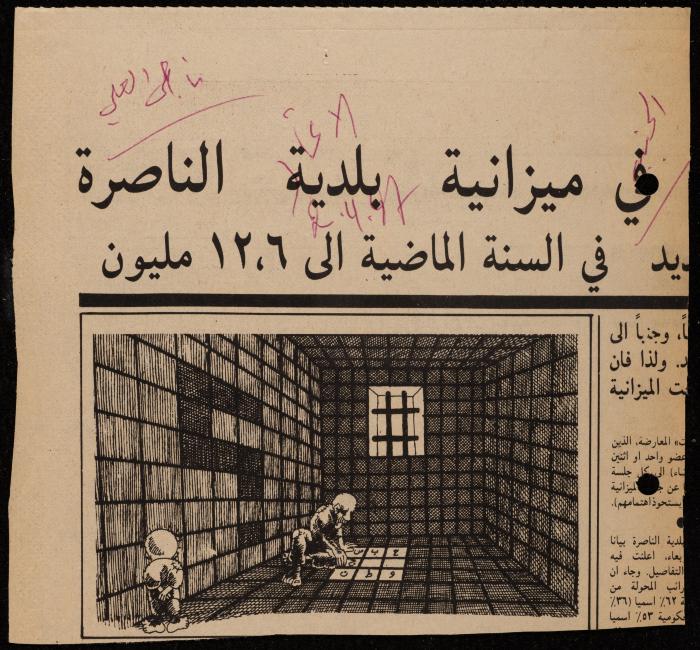 ناجي العلي
في ميزانية بلدية الناصرة
ديد في السنة الماضية الى ١٢،٦ مليون
وجذباً الى
د. ولذا فان
ت الميزانية
ت» المعارضة، الذين
عضو واحد او اثنين
اء) الى كل جلسة
عن لميزانية
يستحوذ اهتمامهم).
لدية الناصرة بيانا
بعاء، اعلنت فيه
التفاصيل. وجاء ان
راتب المحولة من
ة ٦٢٪ اسميا (٣٦٪
كومية ٥٣٪ اسميا
ع ب س
و ط ن